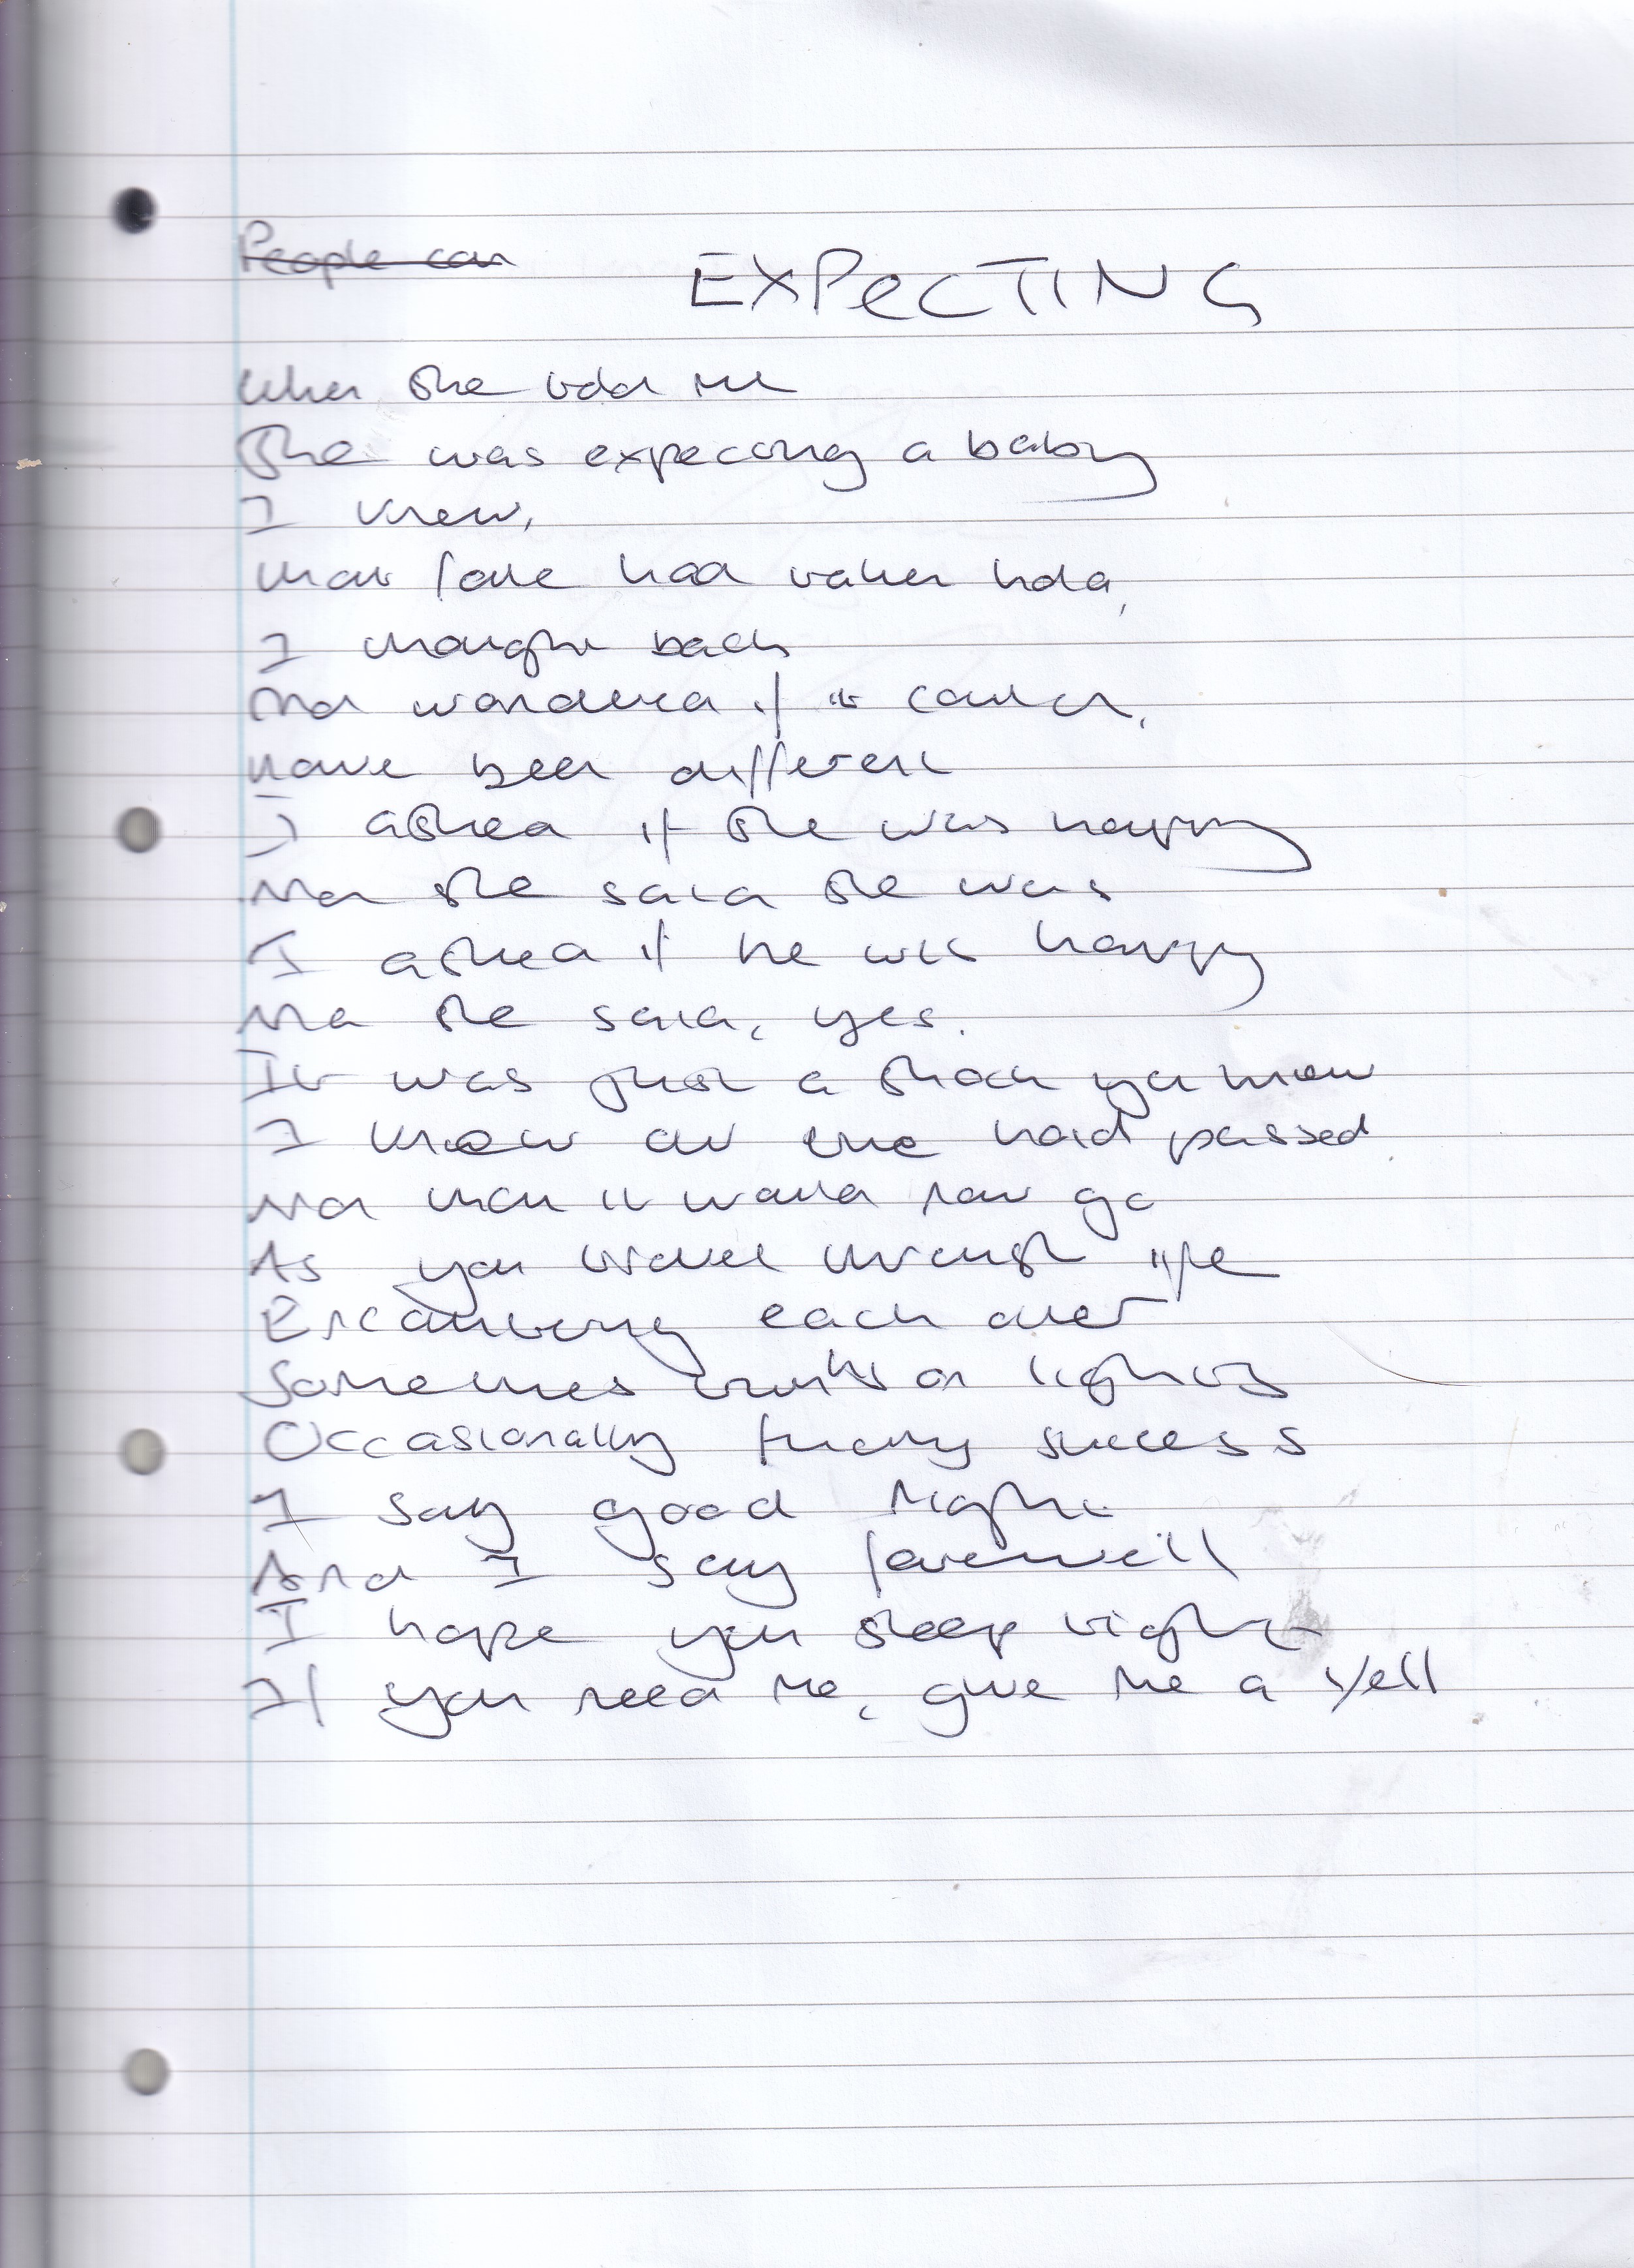 People can
EXPECTING
When she told me
She was expecting a baby
I knew,
that fate had taken hold,
I thought back
And wondered if it could,
have been different
I asked if she was happy
And she said she was
I asked if he was happy
And she said, yes.
It was just a shock you know
I knew at time had passed
And that it would now go
As you travel through life
Encountering each other
Sometimes on lights
Occasionally finding success
I say good night
And I say farewell
I hope you sleep tight
If you need me, give me a yell